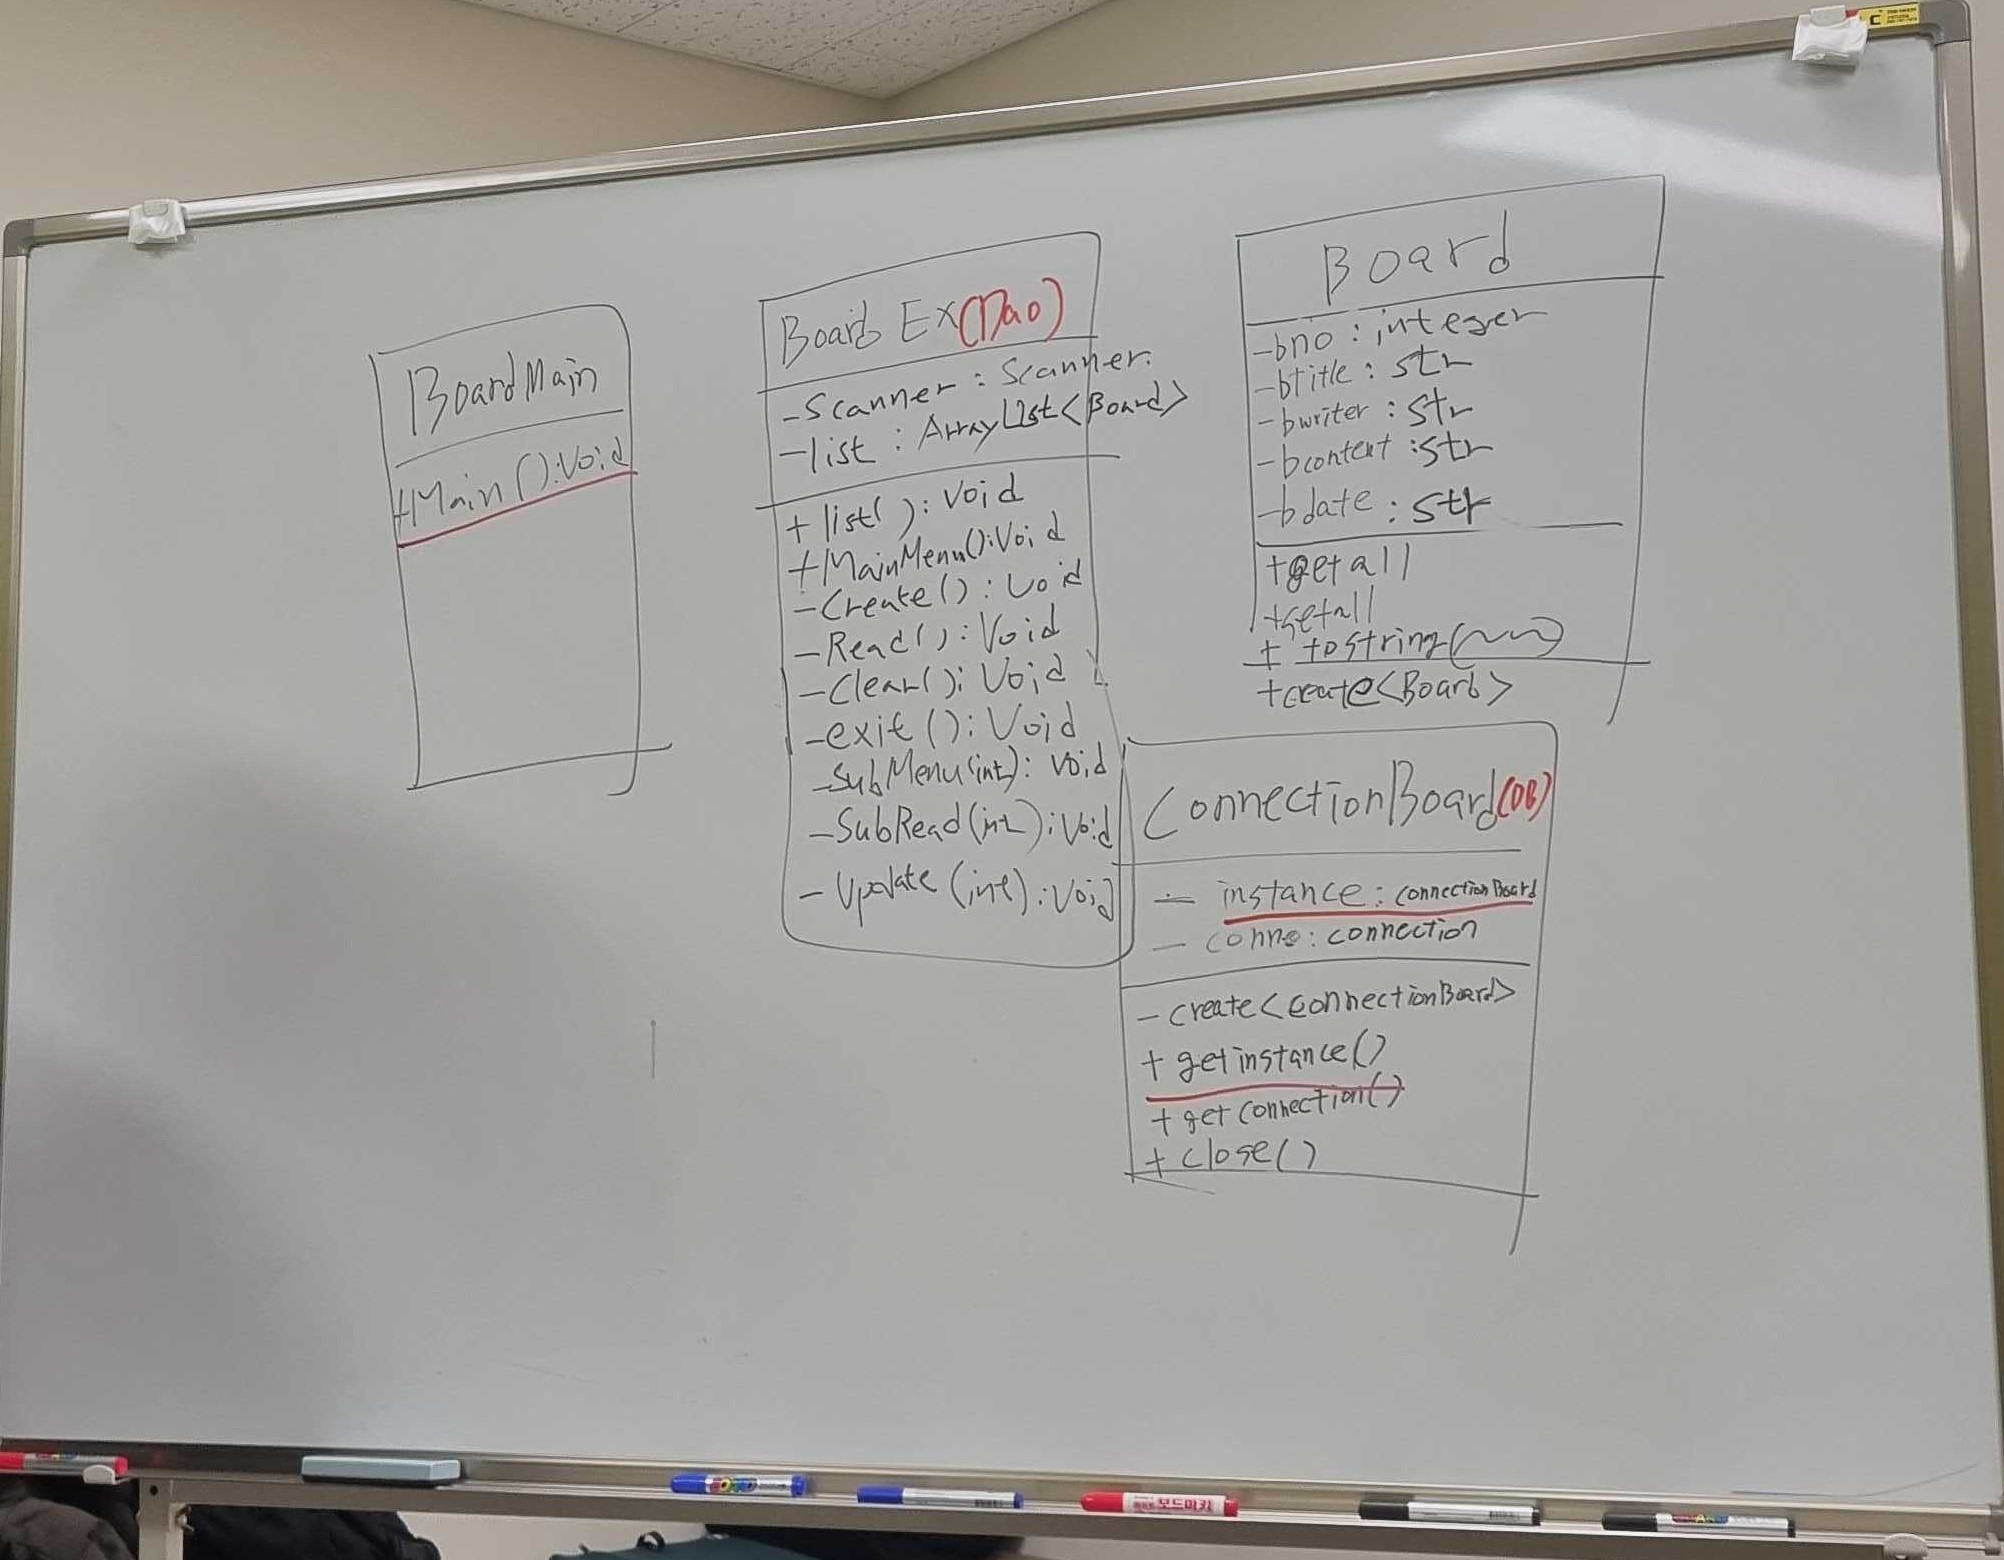 BoardMain
+Main():Void
Board Ex(Dao)
-Scanner : Scanner.
-list : ArrayList<Board>
+ list( ): Void
+MainMenu():Void
-Create() : Void
-Read() : Void
-Clear(): Void
-exit (): Void
-SubMenu(int): Void
-SubRead(int):Void
- Update (int):Void
Board
-bno : integer
-btitle : str
-bwriter : str
-bcontent :str
-bdate : str
+getall
+setall
+ tostring(
+create<Board>
ConnectionBoard(DB)
- instance: connectionBoard
- conne: connection
-create<connectionBoard>
+ getinstance()
+ getconnection()
+ close()
보드마카